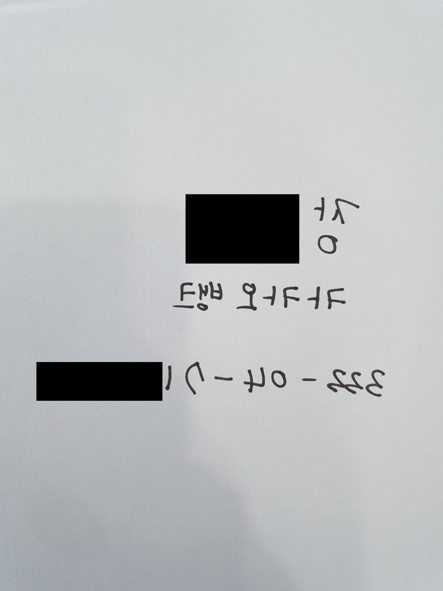 장
카카오 뱅크
3333 - 04 - 71